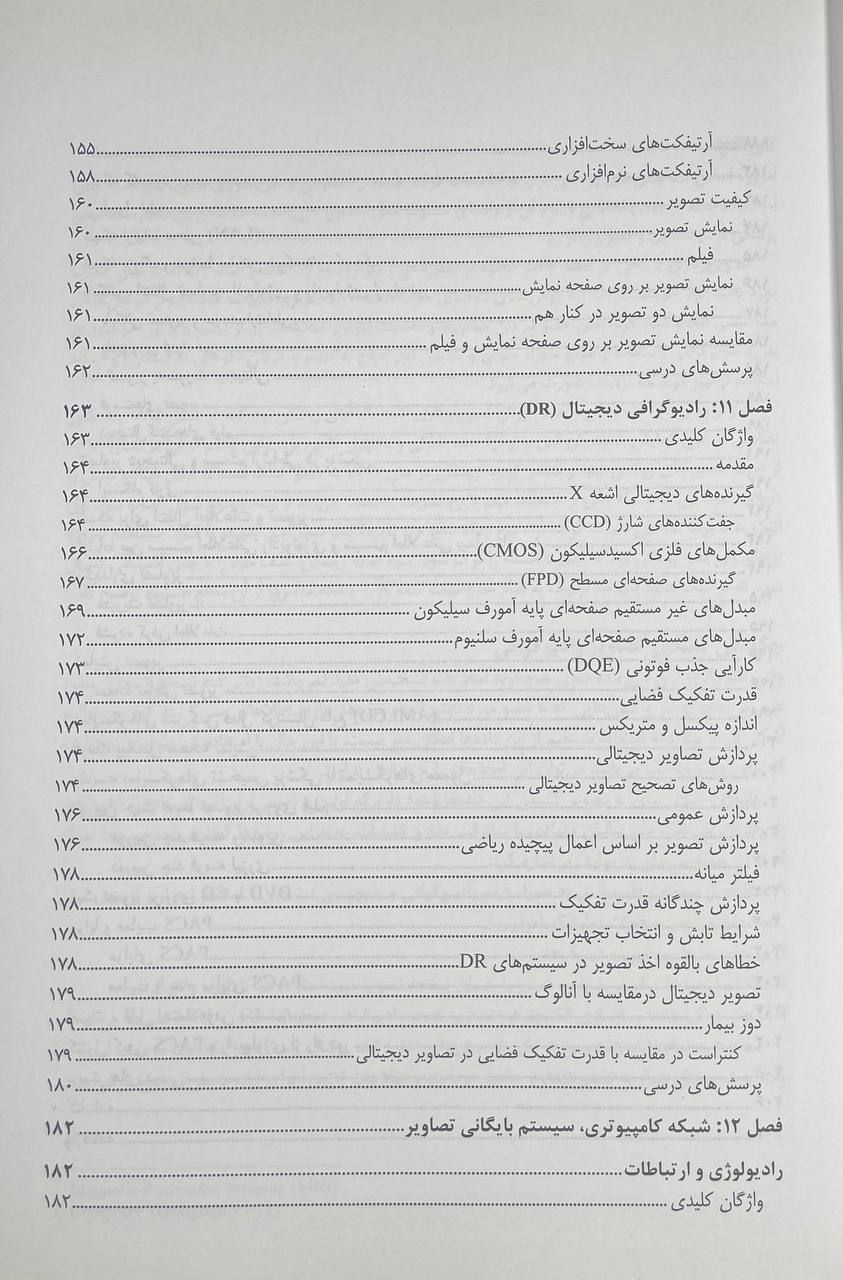 آرتیفکت‌های سخت‌افزاری..........۱۵۵
آرتیفکت‌های نرم‌افزاری..........۱۵۸
کیفیت تصویر..........۱۶۰
نمایش تصویر..........۱۶۰
فیلم..........۱۶۱
نمایش تصویر بر روی صفحه نمایش..........۱۶۱
نمایش دو تصویر در کنار هم..........۱۶۱
مقایسه نمایش تصویر بر روی صفحه نمایش و فیلم..........۱۶۱
پرسش‌های درسی..........۱۶۲
فصل ۱۱: رادیوگرافی دیجیتال (DR)..........۱۶۳
واژگان کلیدی..........۱۶۳
مقدمه..........۱۶۴
گیرنده‌های دیجیتالی اشعه X..........۱۶۴
جفت‌کننده‌های شارژ (CCD)..........۱۶۴
مکمل‌های فلزی اکسیدسیلیکون (CMOS)..........۱۶۶
گیرنده‌های صفحه‌ای مسطح (FPD)..........۱۶۷
مبدل‌های غیر مستقیم صفحه‌ای پایه آمورف سیلیکون..........۱۶۹
مبدل‌های مستقیم صفحه‌ای پایه آمورف سلنیوم..........۱۷۲
کارآیی جذب فوتونی (DQE)..........۱۷۳
قدرت تفکیک فضایی..........۱۷۴
اندازه پیکسل و متریکس..........۱۷۴
پردازش تصاویر دیجیتالی..........۱۷۴
روش‌های تصحیح تصاویر دیجیتالی..........۱۷۴
پردازش عمومی..........۱۷۶
پردازش تصویر بر اساس اعمال پیچیده ریاضی..........۱۷۶
فیلتر میانه..........۱۷۸
پردازش چندگانه قدرت تفکیک..........۱۷۸
شرایط تابش و انتخاب تجهیزات..........۱۷۸
خطاهای بالقوه اخذ تصویر در سیستم‌های DR..........۱۷۸
تصویر دیجیتال درمقایسه با آنالوگ..........۱۷۹
دوز بیمار..........۱۷۹
کنتراست در مقایسه با قدرت تفکیک فضایی در تصاویر دیجیتالی..........۱۷۹
پرسش‌های درسی..........۱۸۰
فصل ۱۲: شبکه کامپیوتری، سیستم بایگانی تصاویر..........۱۸۲
رادیولوژی و ارتباطات..........۱۸۲
واژگان کلیدی..........۱۸۲